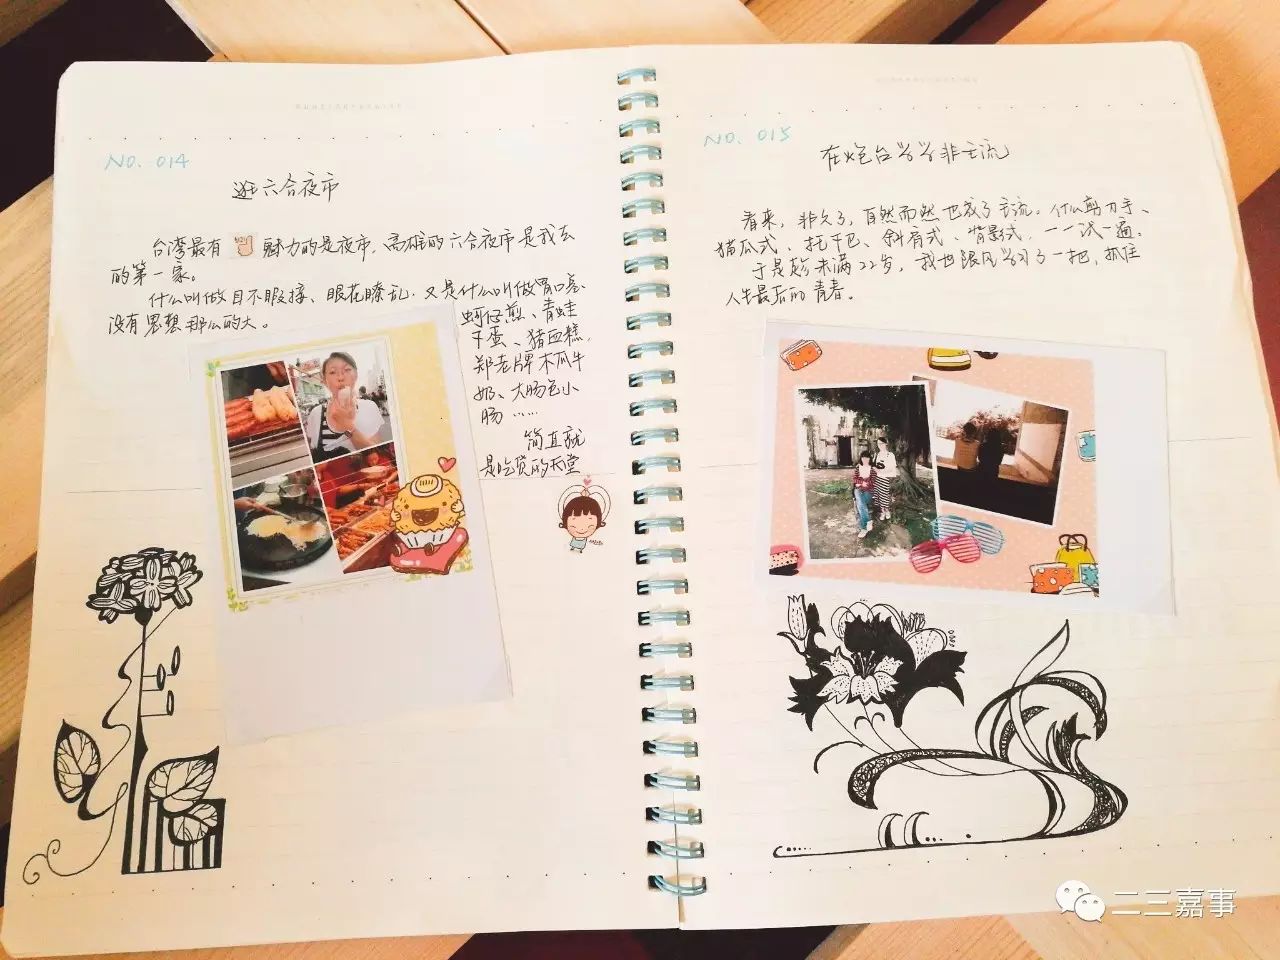 NO. 014
逛六合夜市
台湾最有魅力的是夜市,高雄的六合夜市是我去
的第一家。
什么叫做目不暇接、眼花瞭乱,又是什么叫做胃口
没有思想那么的大。
蚵仔煎、青蛙
下蛋、猪血糕,
郑老牌木瓜牛
奶、大肠包小
肠……
简直就
是吃货的天堂
NO. 015
在炮台学学非主流
看来,非久了,自然而然也成了主流。什么剪刀手、
猫爪式、托下巴、斜肩式、背影式,一一试一遍。
于是趁未满22岁,我也跟风学习了一把,抓住
人生最后的青春。
二三嘉事